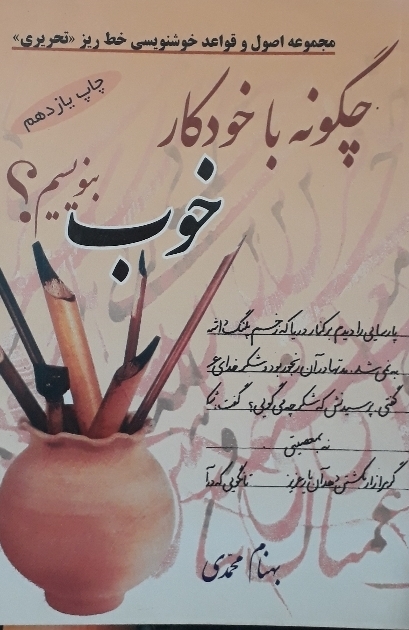 مجموعه اصول و قواعد خوشنویسی خط ریز «تحریری»
چاپ یازدهم
چگونه با خودکار
خوب
بنویسیم؟
پارسایی را دیدم بر کنار دریا که زخم پلنگ داشت
به نمی شد. مدتها در آن رنجور بود و شکر خدای عز
گفتی. پرسیدندش که شکر چه می گویی؟ گفت:
نه بمعصیتی
گر مرا زار بکشتن دهد آن یار عزیز تا نگویی که در آ
بهنام محمدی